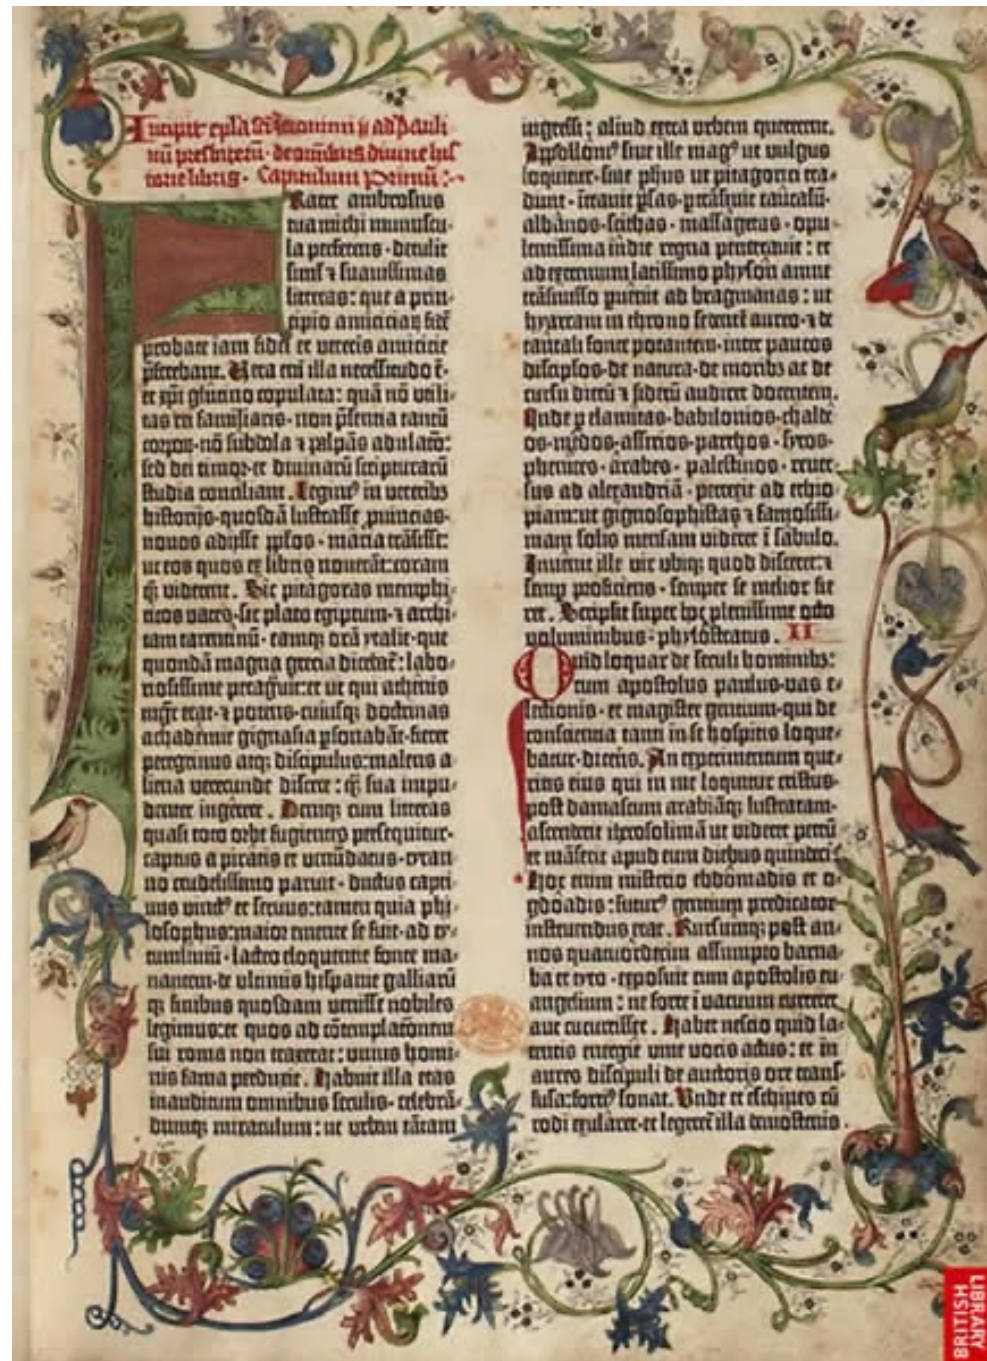 Incipit epla sci Jeronimi ad Pauli-
nū presbiterū · de omībus diuine his-
torie libris · Capitulum Primū :
Frater ambrosius
tua michi munuscu-
la perferens · detulit
siml' ⁊ suauissimas
litteras : que a prin-
cipio amicicia₂ fidē
probate iam fidei et veteris amicicie
p̄ferebant. Vera eni illa necessitudo ē ·
et xp̄i glutino copulata : quā nō vtili-
tas rei familiaris · non p̄sentia tantū
corpo₂ · nō subdola ⁊ palpās adulaco :
sed dei timor · et diuinarū scripturarū
studia conciliant. Legim⁹ in veterib₃
historijs · quosdā lustrasse puincias ·
nouos adijsse pplos · maria trāsisse :
ut eos quos ex libris nouerāt : coram
q₃ viderent. Sic pitagoras memphi-
ticos vates · sic plato egiptum · ⁊ archi-
tam tarentinū · eamq₃ orā ytalie · que
quondā magna grecia dicebat̄ : labo-
riosissime peragrauit : et ut qui athenis
mgr̄ erat · ⁊ potens · cuiusq₃ doctrinas
achademie gignasia psonabāt · fieret
peregrinus atq₃ discipulus : malens a-
liena verecunde discere : q̄₃ sua impu-
denter ingerere. Deniq₃ cum litteras
quasi toto orbe fugientes persequitur ·
captus a piratis et venūdatus · tyran-
no crudelissimo paruit · ductus capti-
uus vinct⁹ et seruus : tamen quia phi-
losophus : maior emente se fuit · ad ty-
tumliuiū · lacteo eloquentie fonte ma-
nantem · de ultimis hispanie galliarū
q₃ finibus quosdam venisse nobiles
legimus : et quos ad cōtemplaconem
sui roma non traxerat : unius homi-
nis fama perduxit. Habuit illa etas
inauditum omnibus seculis · celebrā-
dumq₃ miraculum : ut urbem tātam
ingressi : aliud extra urbem quererent.
Apollonī⁹ siue ille mag⁹ ut vulgus
loquitur · siue phus ut pitagorici tra-
dunt · ītrauit psas · ptrāsiuit caucasū ·
albānos · scithas · massagetas · opu-
lentissima indie regna penetrauit : et
ad extremum latissimo physon amne
trāsmisso puenit ad bragmanas : ut
hyarcam in throno sedentē aureo · ⁊ de
tantali fonte potantem · inter paucos
discip̄los · de natura · de moribs ac de
cursu dierū ⁊ siderū audiret docentem.
Inde p elamitas · babilonios · chalde-
os · medos · assirios · parthos · syros ·
phenices · arabes · palestinos · reuer-
sus ad alexandriā · perrexit ad ethio-
piam : ut gignosophistas ⁊ famosissi-
mam solis mensam videret ī sabulo.
Inuenit ille vir ubiq₃ quod disceret : ⁊
semp proficiens · semper se melior fie-
ret. Scripsit super hoc plenissime octo
voluminibus : phylostratus. II
Quid loquar de seculi hominib₃ :
cum apostolus paulus · vas e-
lectionis · et magister gentium · qui de
conscientia tanti in se hospitis loque-
batur · dicens. An experimentum que-
ritis eius qui in me loquitur cristus
post damascum arabiāq₃ lustratam ·
ascenderit iherosolimā ut videret petrū
et māserit apud eum diebus quindeci
Hoc enim misterio ebdomadis et o-
gdoadis : futur⁹ gentium predicator
instruendus erat. Rursumq₃ post an-
nos quatuordecim assumpto barna-
ba et tyto · exposuit cum apostolis eu-
angelium : ne forte ī vacuum curreret
aut cucurrisset. Habet nescio quid la-
tentis energie viue vocis actus : et in
aures discipuli de auctoris ore trans-
fusa : forci⁹ sonat. Unde et eschines cū
rodi exularet · et legeret̄ illa demostenis ·
BRITISH
LIBRARY